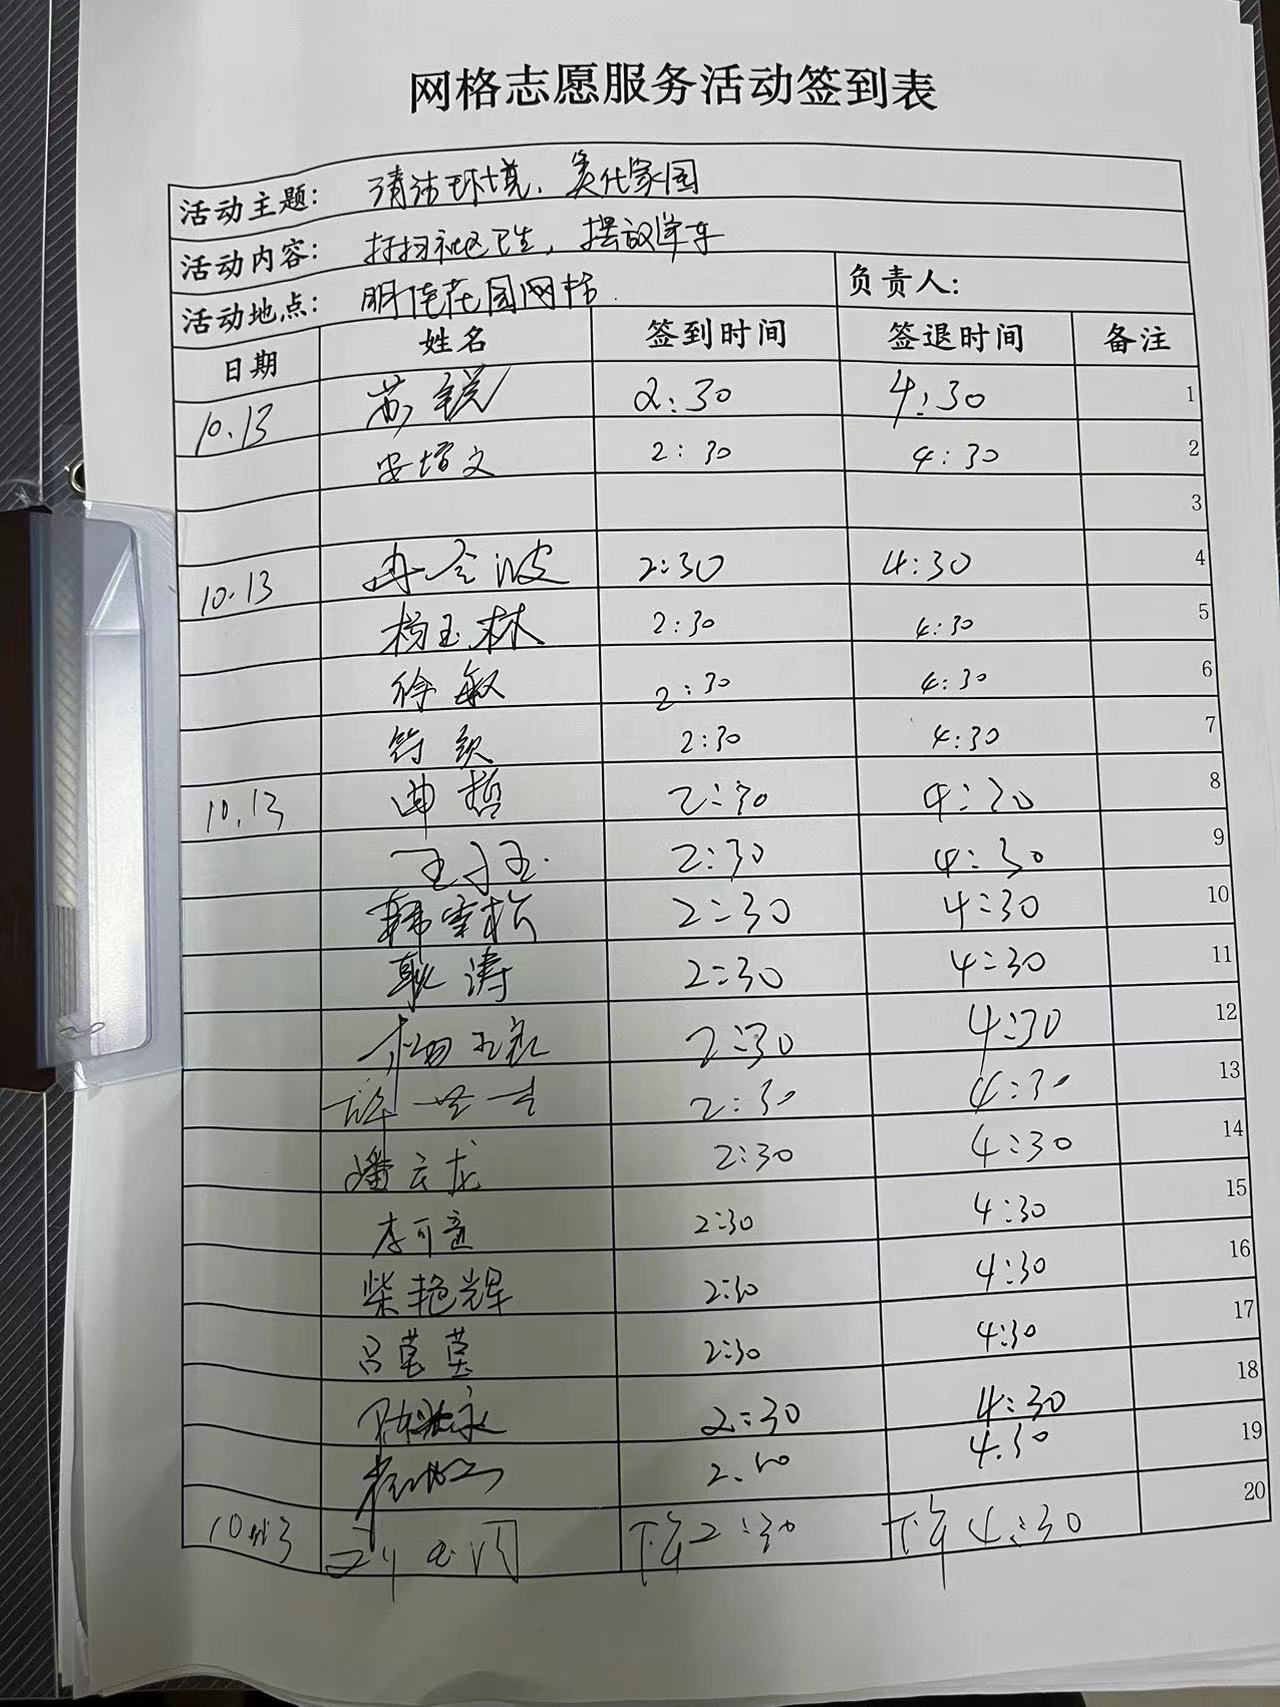 网格志愿服务活动签到表
活动主题： 清洁环境，美化家园
活动内容： 打扫社区卫生，摆放单车
活动地点： 明佳花园网格 负责人：
日期 姓名 签到时间 签退时间 备注
10.13 苏锐 2:30 4:30 1
安增文 2:30 4:30 2
3
10.13 冉令波 2:30 4:30 4
杨玉林 2:30 4:30 5
徐敏 2:30 4:30 6
2:30 4:30 7
10.13 曲哲 2:30 4:30 8
2:30 4:30 9
韩雪松 2:30 4:30 10
耿涛 2:30 4:30 11
2:30 4:30 12
2:30 4:30 13
潘云龙 2:30 4:30 14
李可 2:30 4:30 15
柴艳辉 2:30 4:30 16
吕莫莫 2:30 4:30 17
2:30 4:30 18
4.30 19
下午2:30 下午4:30 20